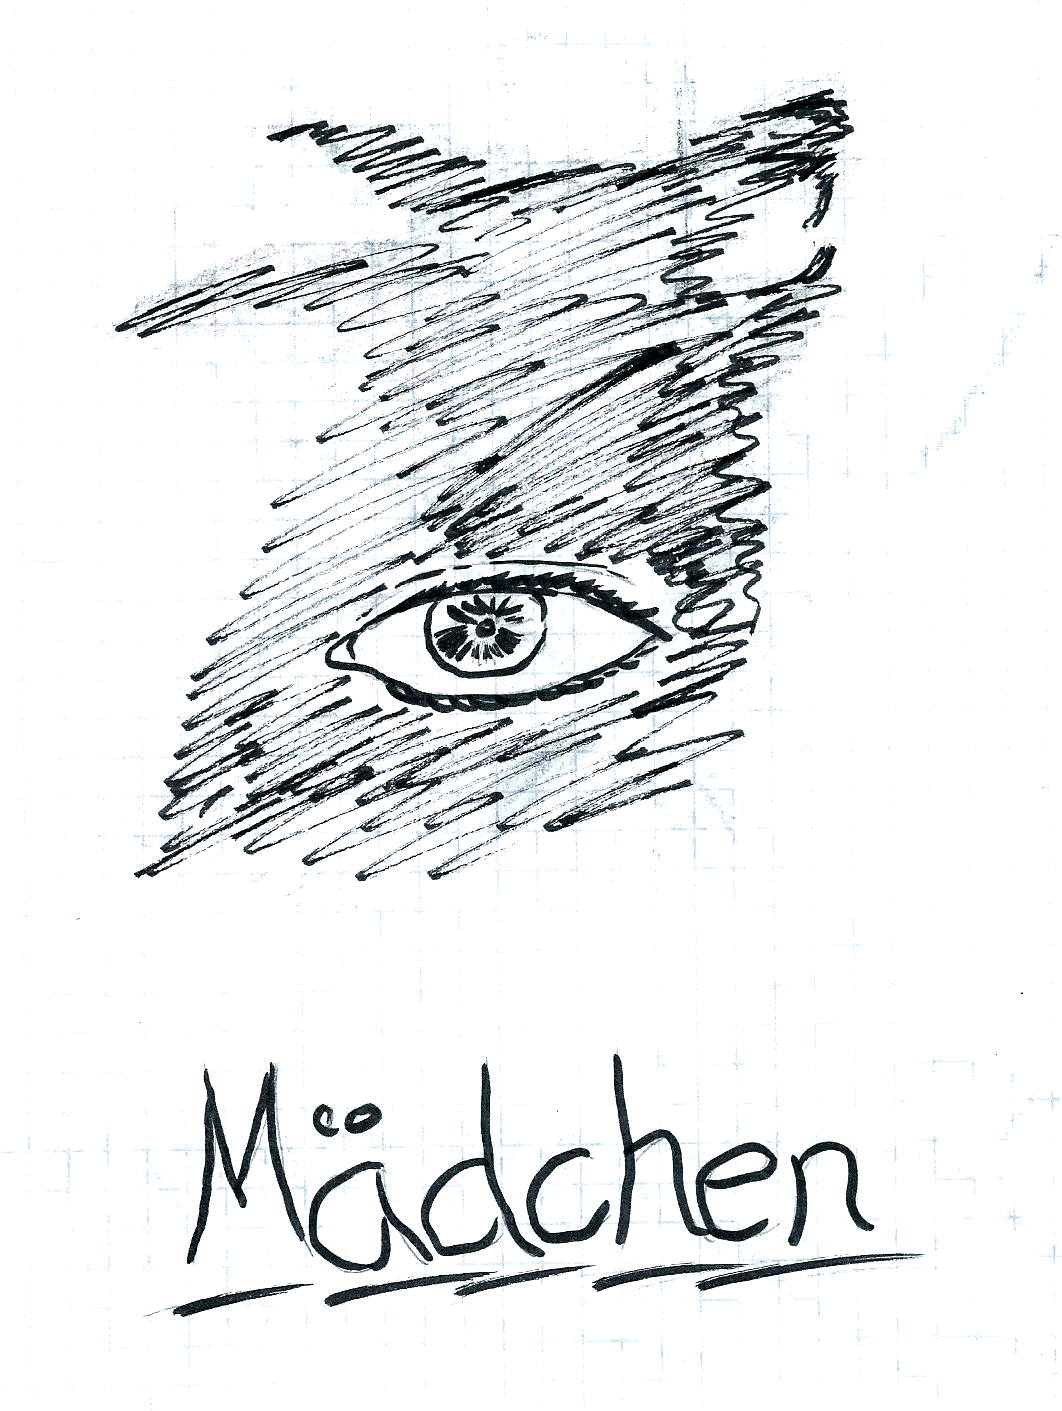 Mädchen